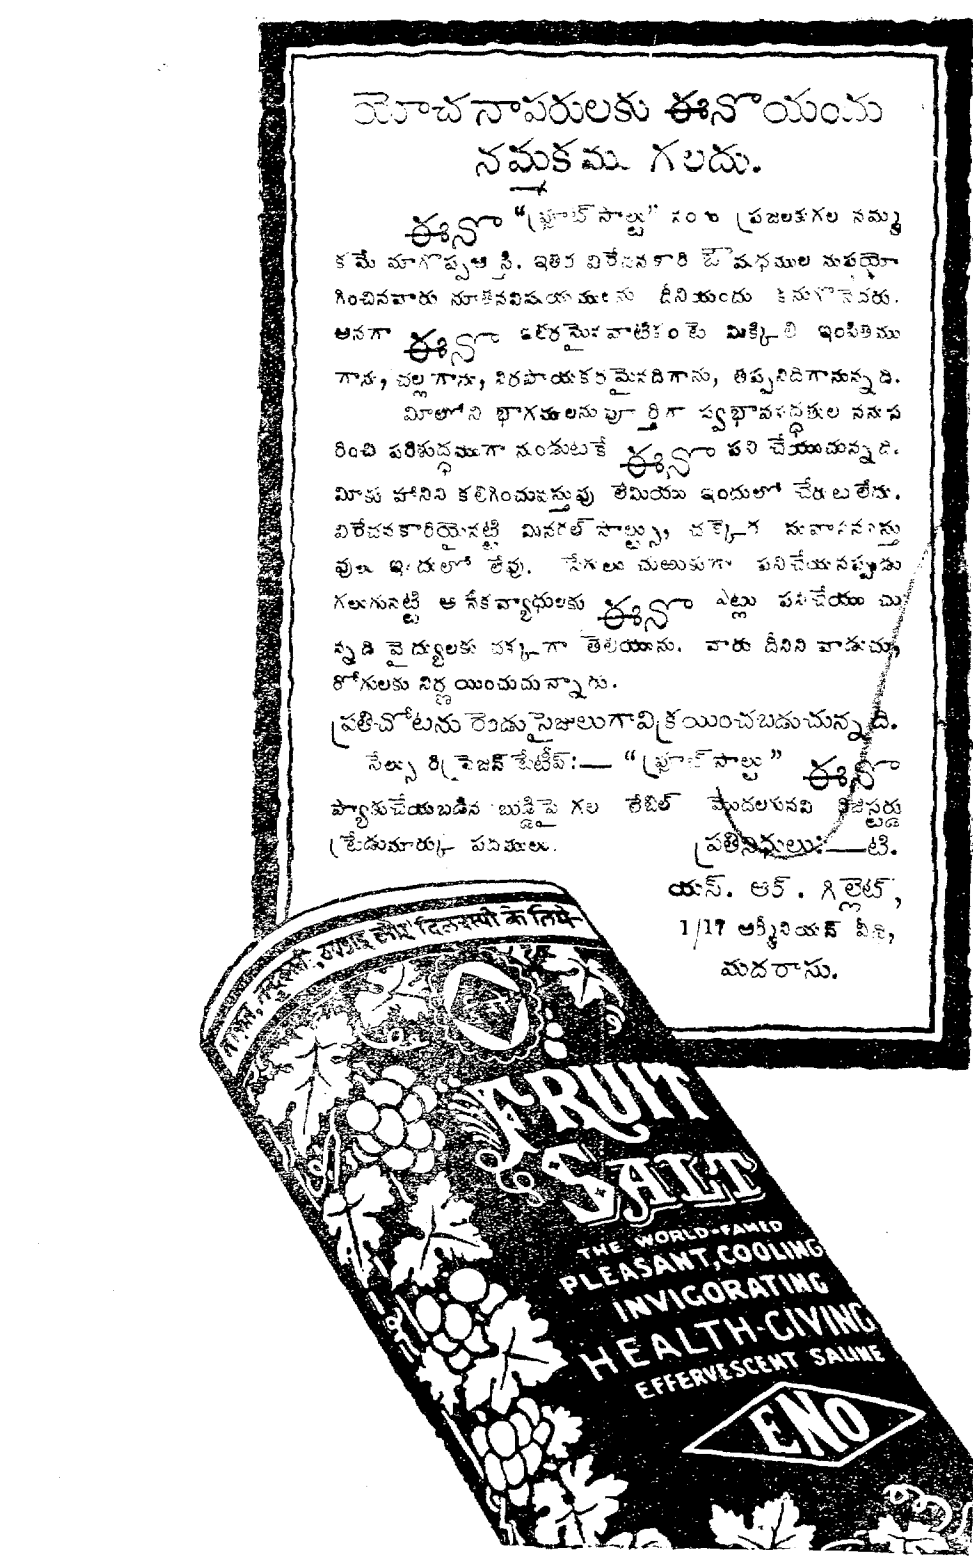 యోచనాపరులకు ఈనొయందు
నమ్మకము గలదు.
ఈనొ "ఫ్రూట్ సాల్టు" నందు ప్రజలకుగల నమ్మ
కమే మాగొప్పఆస్తి. ఇతర విరేచనకారి ఔషధముల నుపయో
గించినవారు నూతనవిషయములను దీనియందు కనుగొనెదరు.
అనగా ఈనొ ఇతరమైనవాటికంటె మిక్కిలి ఇంపితము
గాను, చల్లగాను, నిరపాయకరమైనదిగాను, తప్పనిదిగానున్నది.
మీలోని భాగములనుపూర్తిగా స్వభావసిద్ధతుల ననుస
రించి పరిశుద్ధముగా నుండుటకే ఈనొ పని చేయుచున్నది.
మీకు హానిని కలిగించువస్తువు లేమియు ఇందులో చేరుటలేదు.
విరేచనకారియైనట్టి మినరల్ సాల్ట్సు, చక్కెర సువాసనవస్తు
వులు ఇందులో లేవు. పేగులు చురుకుగా పనిచేయనప్పుడు
గలుగునట్టి అనేకవ్యాధులకు ఈనొ ఎట్లు పనిచేయుచు
న్నది వైద్యులకు చక్కగా తెలియును. వారు దీనిని వాడుచు,
రోగులకు నిర్ణయించుచున్నారు.
ప్రతిచోటను రెండుసైజులుగావిక్రయించబడుచున్నది.
సేల్సు రిప్రెజెన్టేటీవ్:— "ఫ్రూట్ సాల్టు" ఈనొ
ప్యాకుచేయబడిన బుడ్డిపై గల లేబిల్ మొదలగునవి రిజిస్టర్డు
ట్రేడుమార్కు పదములు.
ప్రతినిధులు:—టి.
యస్. ఆర్. గిల్లెట్,
1/17 ఆర్మీనియన్ వీధి,
మదరాసు.
ताकत, तन्दुरुस्ती, ठण्डाई और दिलरुस्पी के लिये
FRUIT
SALT
THE WORLD-FAMED
PLEASANT, COOLING
INVIGORATING
HEALTH-GIVING
EFFERVESCENT SALINE
ENO